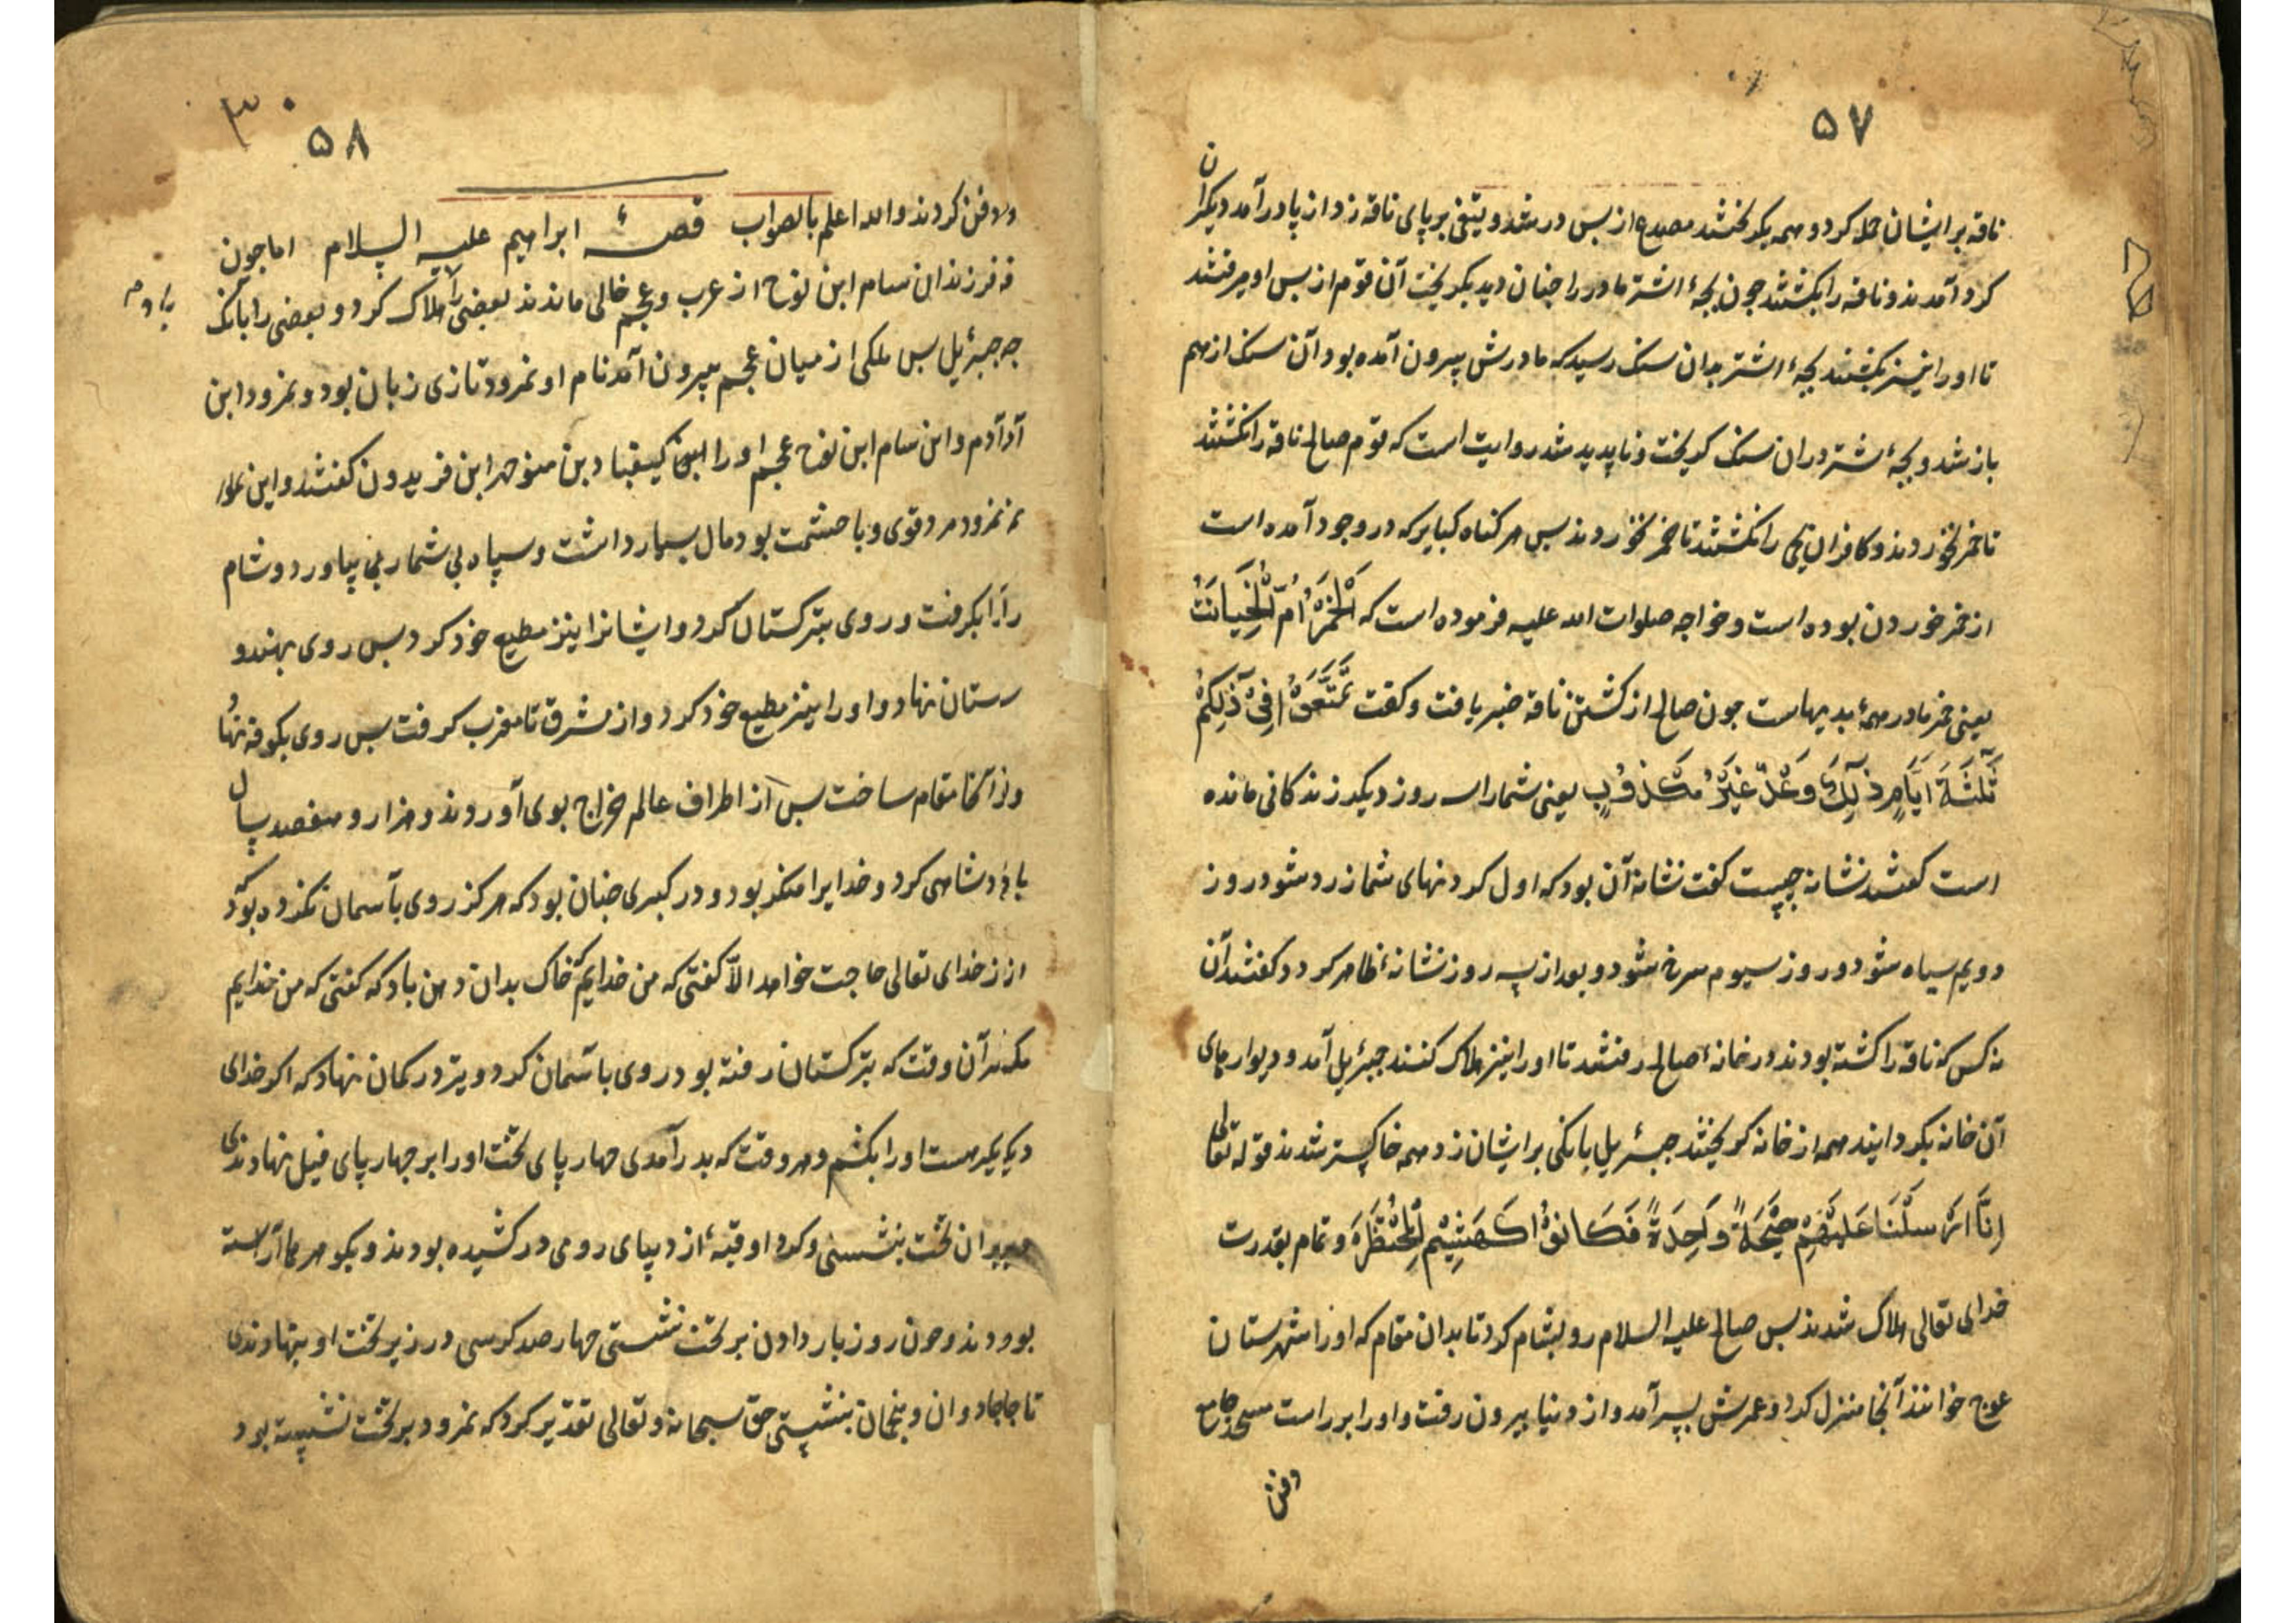 ۵۷
ناقه بر ایشان حمله کرد و همه بگریختند مصدع از پس در شد و تیغی بر پای ناقه زد از پا در آمد دیکران
کرد آمدند و ناقه را بکشتند چون بچهٔ اشتر مادر را چنان دید بگریخت آن قوم از پس او میرفتند
تا او را نیز بکشند بچهٔ اشتر بدان سنک رسید که مادرش بیرون آمده بود آن سنک از هم
باز شد و بچهٔ اشتر در ان سنک کریخت و ناپدید شد روایت است که قوم صالح ناقه را نکشتند
تا خمر نخوردند و کافران را نکشتند تا خمر نخوردند پس هر کناه کبایر که در وجود آمده است
از خمر خوردن بوده است و خواجه صلوات الله علیه فرموده است که اَلْخَمْرَةُ اُمُّ الْخَیانَتْ
یعنی خمر مادر همهٔ بدیهاست چون صالح از کشتن ناقه خبر یافت و کفت تَمَتَّعَوُْا فِیْ ذٰلِکُمْ
ثَلٰثَةَ اَیَّامٍ ذٰلِکَ وَعْدٌ غَیْرُ مَکْذُوْبٍ یعنی شما را سه روز دیکر زندکانی مانده
است کفتند نشانه چیست کفت نشانهٔ آن بود که اول کردنهای شما زرد شود روز
دویم سیاه شود و روز سیوم سرخ شود و بعد از سه روز نشانهٔ ظاهر کردد کفتند آن
نه کس که ناقه را کشته بودند در خانهٔ صالح رفتند تا او را نیز هلاک کنند جبرئیل آمد و دیوارهای
آن خانه بکردانید همه از خانه کریختند جبرئیل بانکی بر ایشان زد همه خاکستر شدند قوله تعالی
اِنَّا اَرْسَلْنَا عَلَیْهِمْ صَیْحَةً وَاحِدَةً فَکَانُوْا کَهَشِیْمِ الْمُحْتَظَرِ و تمام بقدرت
خدای تعالی هلاک شدند پس صالح علیه السلام رو بشام کرد تا بدان مقام که او را شهرستان
عوج خوانند آنجا منزل کرد و عمرش بسر آمد و از دنیا بیرون رفت و او را برراست مسجد جامع
دفن
۳۰
۵۸
دفن کردند والله اعلم بالصواب قصهٔ ابراهیم علیه السلام اما چون
فرزندان سام ابن نوح از عرب و عجم خالی ماندند بعضی را هلاک کرد و بعضی را بانک
جبرئیل پس ملکی از میان عجم بیرون آمد نام او نمرود تازی زبان بود و نمرود ابن
آدم و ابن سام ابن نوح عجم او را کیقباد بن منوچهر ابن فریدون کفتند و این
نمرود مرد قوی و با حشمت بود مال بسیار داشت و سپاه بی شمار بیاورد و شام
را بکرفت و روی بترکستان کرد و ایشانرا نیز مطیع خود کرد پس روی بهندو
ستان نهاد و او را نیز مطیع خود کرد و از مشرق تا مغرب کرفت پس روی بکوفه نهاد
و در آنجا مقام ساخت پس از اطراف عالم خراج بوی آوردند و هزار و هفصد سال
پادشاهی کرد و خدایرا منکر بود و در کبری چنان بود که هرکز روی بآسمان نکرده بود
از خدای تعالی حاجت خواهد الّا کفتی که من خدایم خاک بدان دهن باد که کفتی که من خدایم
مکر آن وقت که بترکستان رفته بود روی باسمان کرد و تیر در کمان نهاد که اکر خدای
دیکر هست او را بکشم و هر وقت که بدر آمدی چهار پای تخت او را بر چهار پای فیل نهادندی
بر ان تخت بنشستی و کرد او قبهٔ از دیبای رومی در کشیده بودند و بکوهرها آراسته
بودند و چون روز بار دادن بر تخت نشستی چهار صد کرسی در زیر تخت او بنهادندی
تا جادوان و منجمان بنشستی حق سبحانه و تعالی تقدیر کرد که نمرود بر تخت نشسته بود